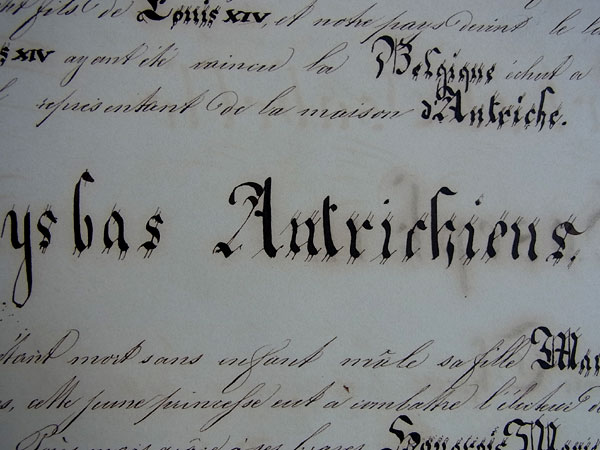 fils de Louis XIV, et notre pays devint le
XIV ayant été vaincu la Belgique échut a
représentant de la maison d'Autriche.
ys bas Autrichiens.
étant mort sans enfant mâle sa fille Mar
cette jeune princesse eut à combattre l'électeur de
grâce à ses braves Hongrois Marie